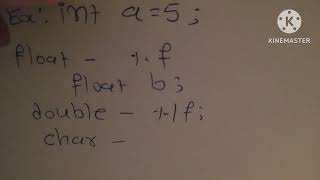 Ex: int a=5;
float - %f
float b;
double - %lf;
char -
KINEMASTER